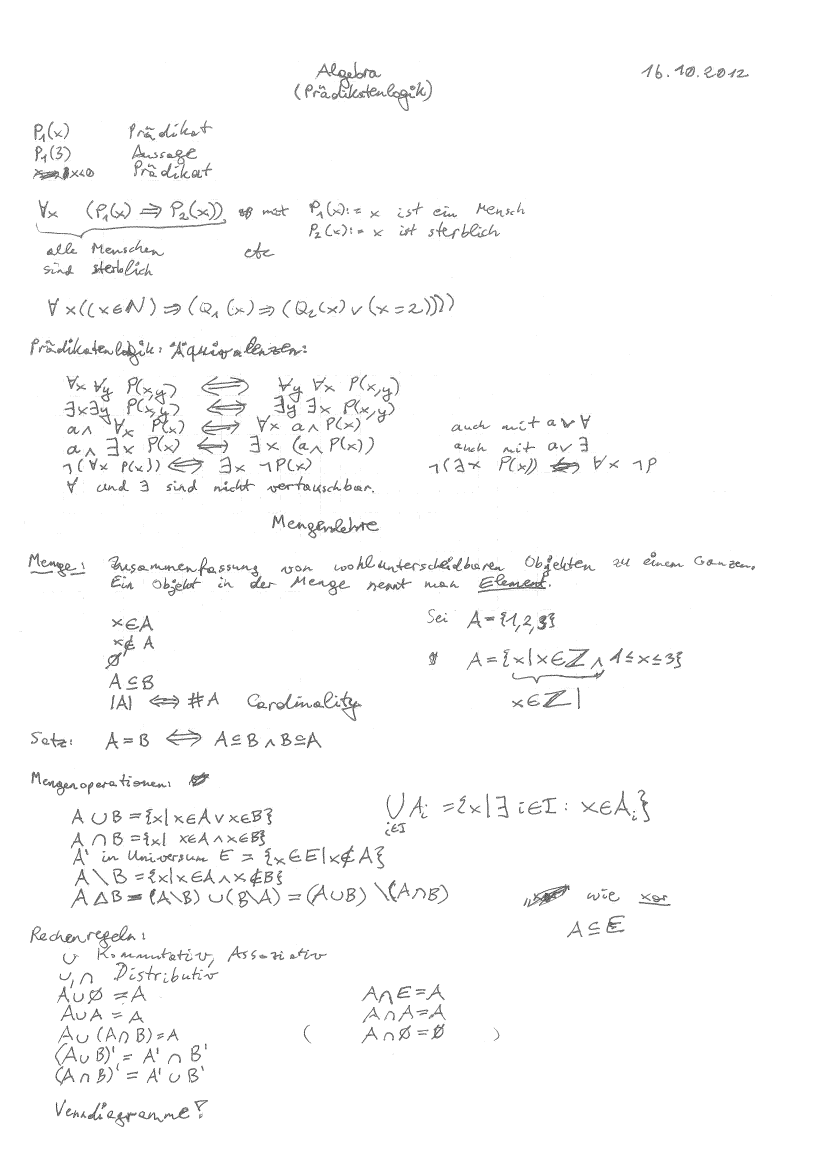 Algebra 16.10.2012
(Prädikatenlogik)
P₁(x) Prädikat
P₁(3) Aussage
x<0 Prädikat
∀x (P₁(x) ⇒ P₂(x)) mit P₁(x):= x ist ein Mensch
P₂(x):= x ist sterblich
alle Menschen etc
sind sterblich
∀x((x∈N) ⇒ (Q₁(x) ⇒ (Q₂(x) ∨ (x=2))))
Prädikatenlogik: Äquivalenzen:
∀x ∀y P(x,y) ⇔ ∀y ∀x P(x,y)
∃x∃y P(x,y) ⇔ ∃y ∃x P(x,y)
a∧ ∀x P(x) ⇔ ∀x a∧P(x) auch mit a∨ ∀
a∧ ∃x P(x) ⇔ ∃x (a∧P(x)) auch mit a∨ ∃
¬(∀x P(x)) ⇔ ∃x ¬P(x) ¬(∃x P(x)) ⇔ ∀x ¬P
∀ und ∃ sind nicht vertauschbar.
Mengenlehre
Menge: Zusammenfassung von wohlunterscheidbaren Objekten zu einem Ganzen.
Ein Objekt in der Menge nennt man Element.
x∈A Sei A={1,2,3}
x∉A
∅ A={x|x∈ℤ ∧ 1≤x≤3}
A⊆B
|A| ⇔ #A Cardinality x∈ℤ|
Satz: A=B ⇔ A⊆B ∧ B⊆A
Mengenoperationen:
A∪B={x|x∈A∨x∈B} ⋃ i∈I Aᵢ ={x|∃ i∈I: x∈Aᵢ}
A∩B={x| x∈A∧x∈B}
A' in Universum E = {x∈E|x∉A}
A\B={x|x∈A∧x∉B}
A△B=(A\B)∪(B\A)=(A∪B)\(A∩B) wie xor
A⊆E
Rechenregeln:
∪ Kommutativ, Assoziativ
∪,∩ Distributiv
A∪∅=A A∩E=A
A∪A=A A∩A=A
A∪(A∩B)=A ( A∩∅=∅ )
(A∪B)'=A'∩B'
(A∩B)'=A'∪B'
Venndiagramme!